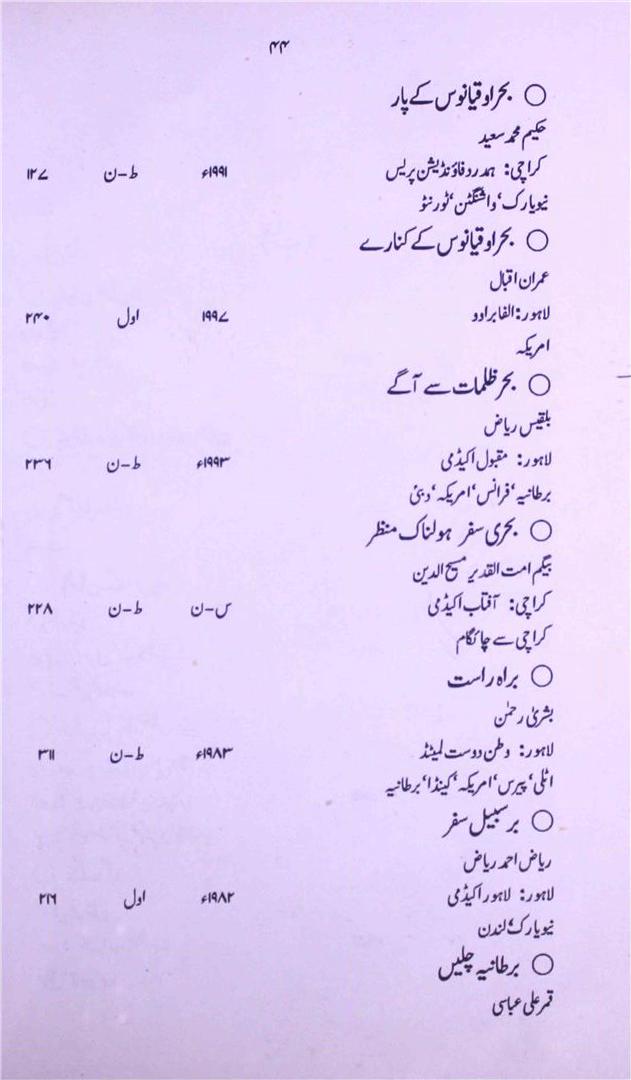 ۴۴
○ بحر اوقیانوس کے پار
حکیم محمد سعید
کراچی: ہمدرد فاؤنڈیشن پریس ۱۹۹۱ء ط-ن ۱۲۷
نیویارک‘ واشنگٹن‘ ٹورنٹو
○ بحر اوقیانوس کے کنارے
عمران اقبال
لاہور: الفا براوو ۱۹۹۷ اول ۲۴۰
امریکہ
○ بحر ظلمات سے آگے
بلقیس ریاض
لاہور: مقبول اکیڈمی ۱۹۹۳ء ط-ن ۲۳۶
برطانیہ‘ فرانس‘ امریکہ‘ دبئی
○ بحری سفر ہولناک منظر
بیگم امت القدیر مسیح الدین
کراچی: آفتاب اکیڈمی س-ن ط-ن ۲۲۸
کراچی سے چاٹگام
○ براہ راست
بشریٰ رحمٰن
لاہور: وطن دوست لمیٹڈ ۱۹۸۳ء ط-ن ۳۱۱
اٹلی‘ پیرس‘ امریکہ‘ کینڈا‘ برطانیہ
○ بر سبیل سفر
ریاض احمد ریاض
لاہور: لاہور اکیڈمی ۱۹۸۲ء اول ۲۱۶
نیویارک‘ لندن
○ برطانیہ چلیں
قمر علی عباسی